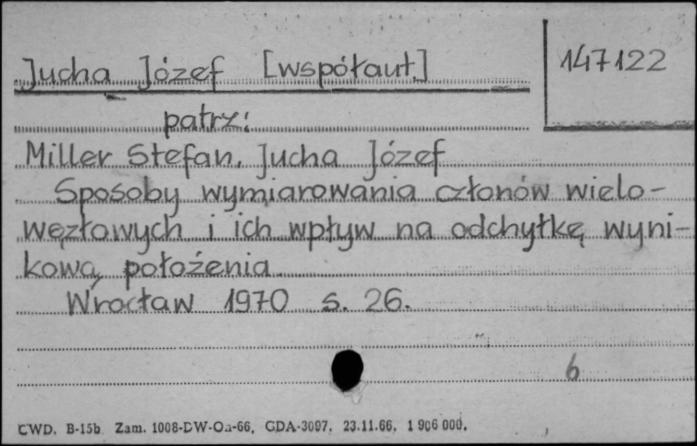 Jucha Józef [współaut.] 147122
patrz:
Miller Stefan, Jucha Józef
Sposoby wymiarowania członów wielo-
węzłowych i ich wpływ na odchyłkę wyni-
kową położenia.
Wrocław 1970 s. 26.
6
CWD. B-15b Zam. 1008-DW-Oa-66. GDA-3097. 23.11.66. 1 906 000.